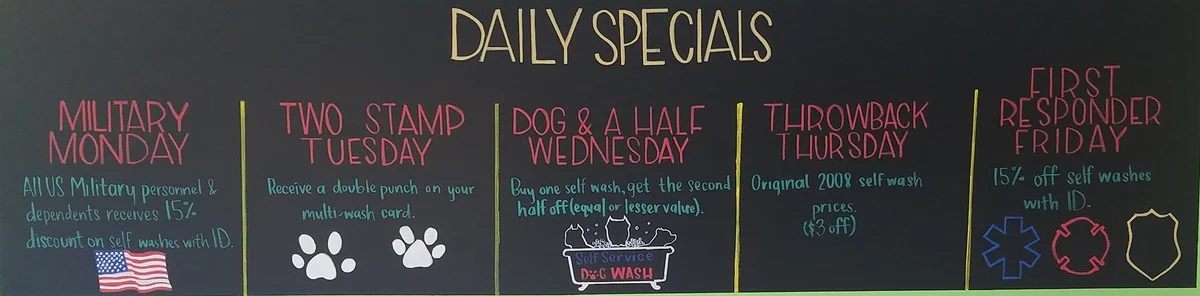 DAILY SPECIALS
MILITARY
MONDAY
All US Military personnel &
dependents receives 15%
discount on self washes with ID.
TWO STAMP
TUESDAY
Receive a double punch on your
multi-wash card.
DOG & A HALF
WEDNESDAY
Buy one self wash, get the second
half off (equal or lesser value).
Self Service
DOG WASH
THROWBACK
THURSDAY
Original 2008 self wash
prices.
($3 off)
FIRST
RESPONDER
FRIDAY
15% off self washes
with ID.